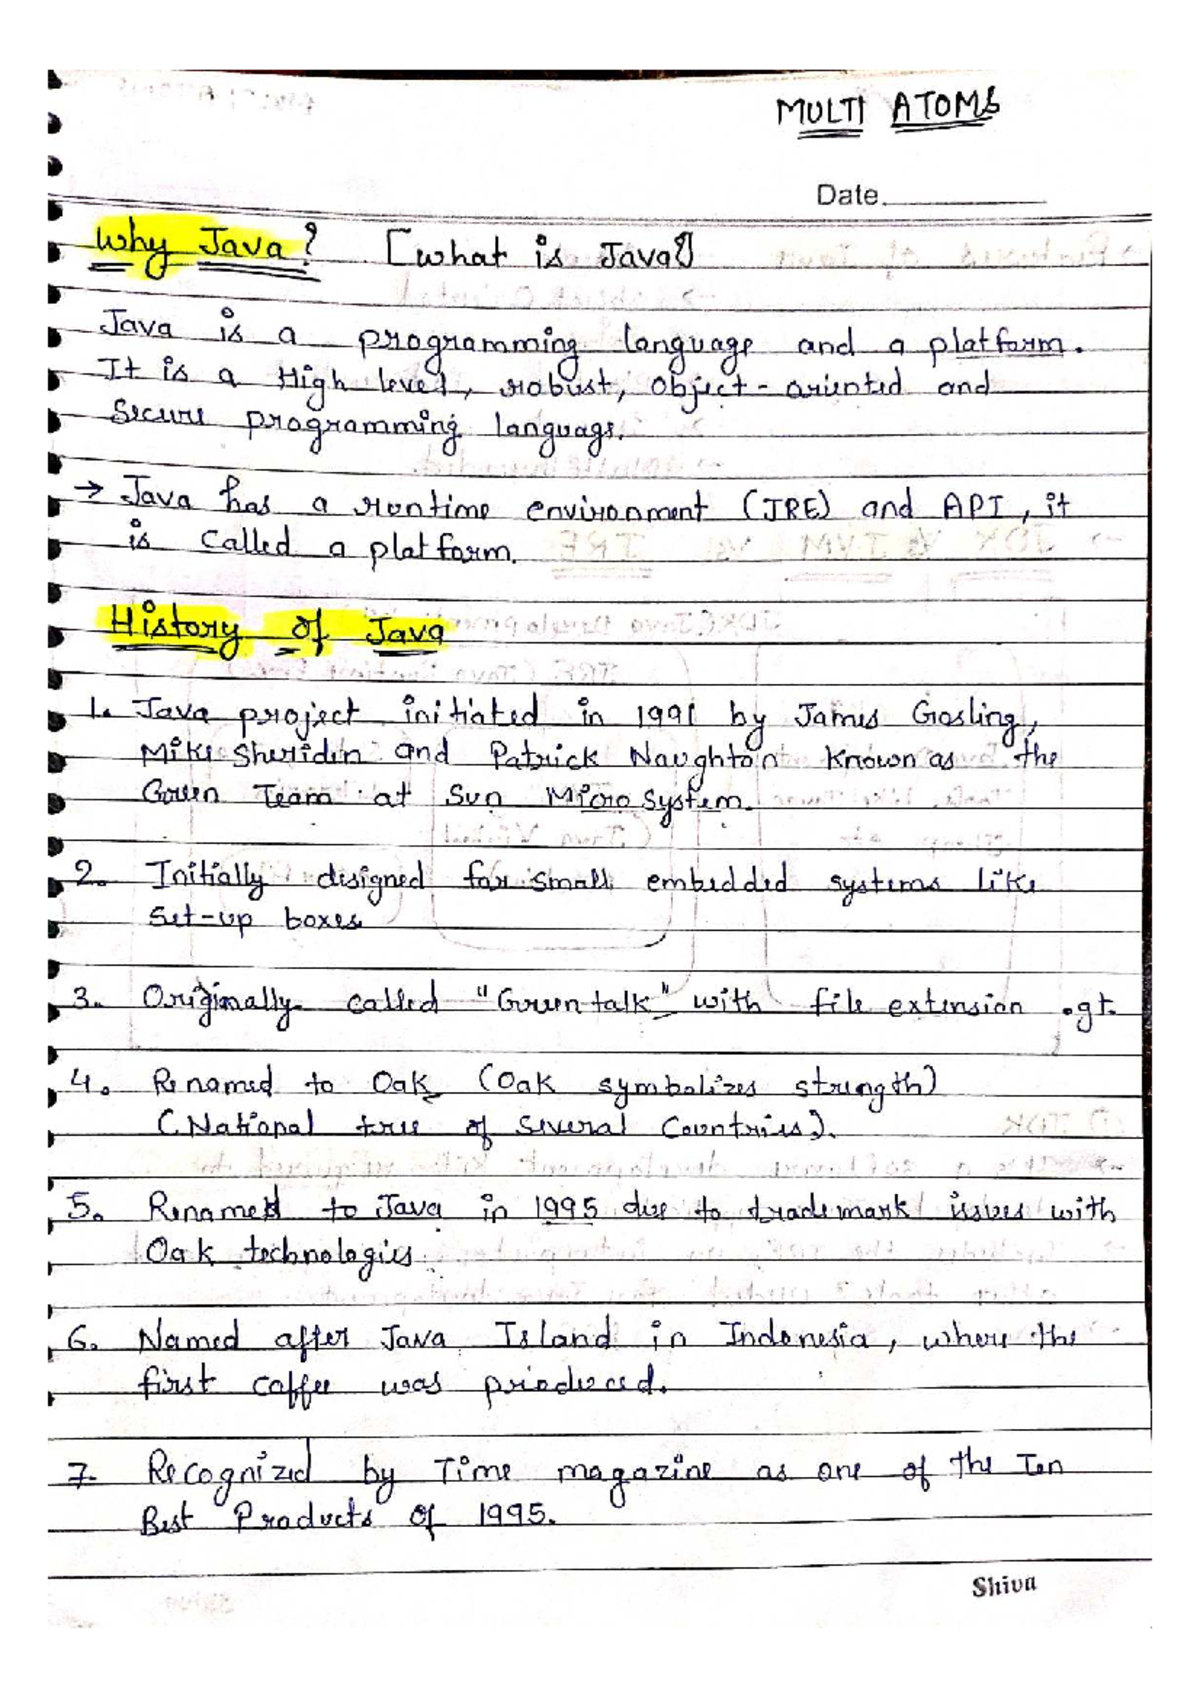 MULTI ATOMS
Date.
Why Java? [What is Java?]
Java is a programming language and a platform.
It is a High level, robust, Object-oriented and
Secure programming language.
→ Java has a runtime environment (JRE) and API, it
is Called a platform.
History of Java
1. Java project initiated in 1991 by James Gosling,
Mike Sheridin and Patrick Naughton Known as the
Green Team at Sun Micro System.
2. Initially designed for small embedded systems like
Set-up boxes
3. Originally called "Greentalk" with file extension .gt.
4. Renamed to Oak (Oak symbolizes strength)
(National tree of Several Countries).
5. Renamed to Java in 1995 due to trademark issues with
Oak technologies.
6. Named after Java Island in Indonesia, where the
first coffee was produced.
7. Recognized by Time magazine as one of the Ten
Best Products of 1995.
Shiva